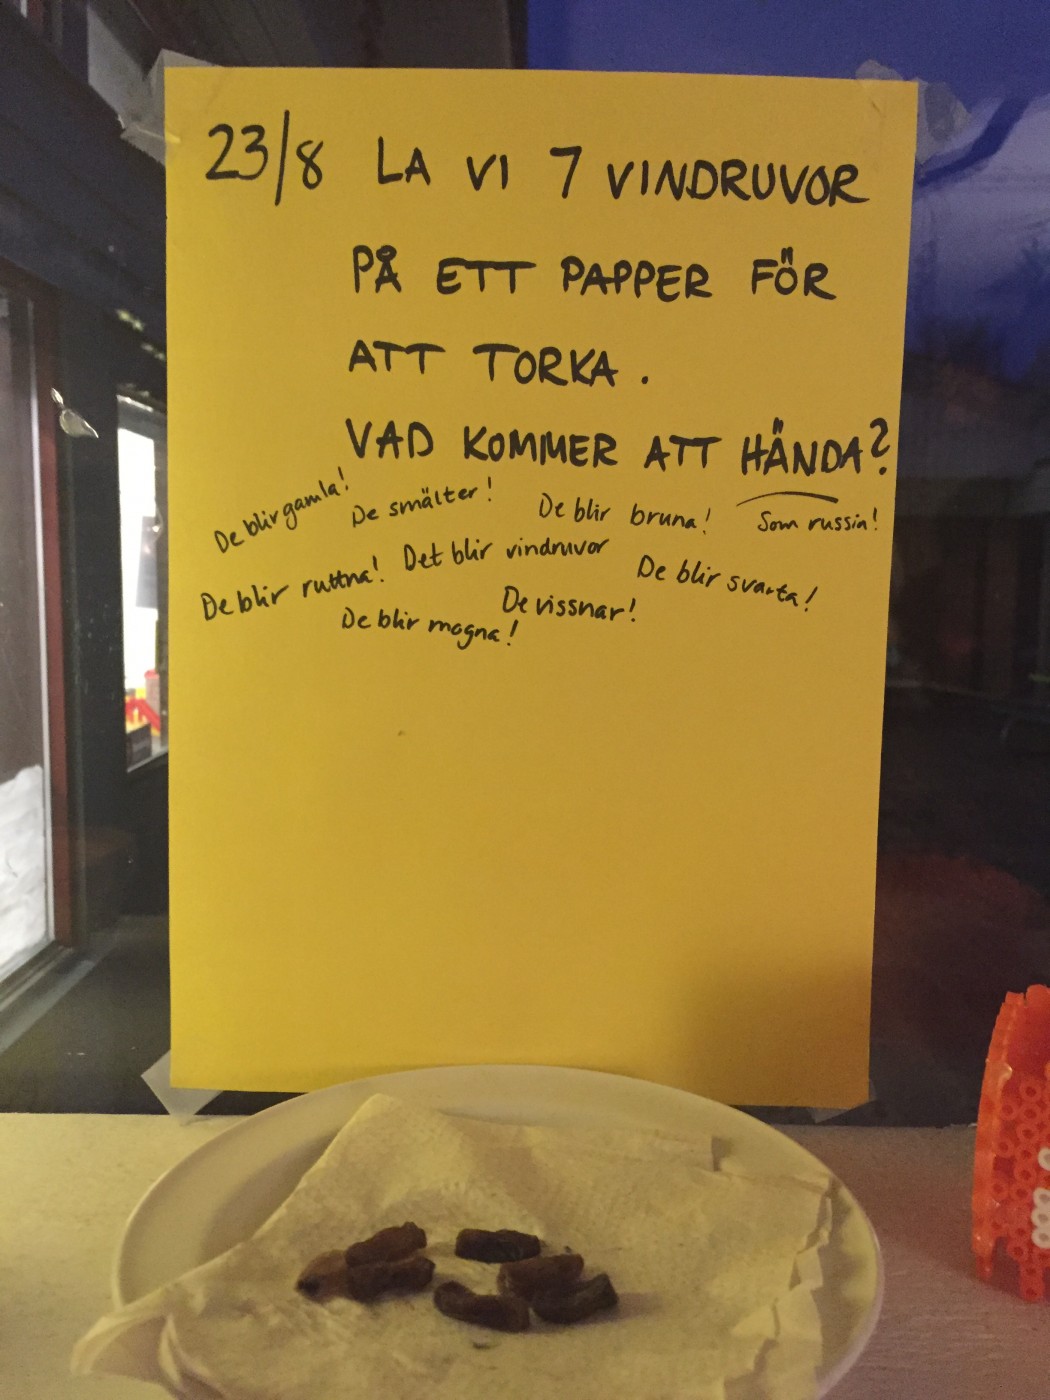 23/8 LA VI 7 VINDRUVOR
PÅ ETT PAPPER FÖR
ATT TORKA.
VAD KOMMER ATT HÄNDA?
De blir gamla!
De smälter!
De blir bruna!
Som russin!
De blir ruttna!
Det blir vindruvor
De blir svarta!
De blir mogna!
De vissnar!